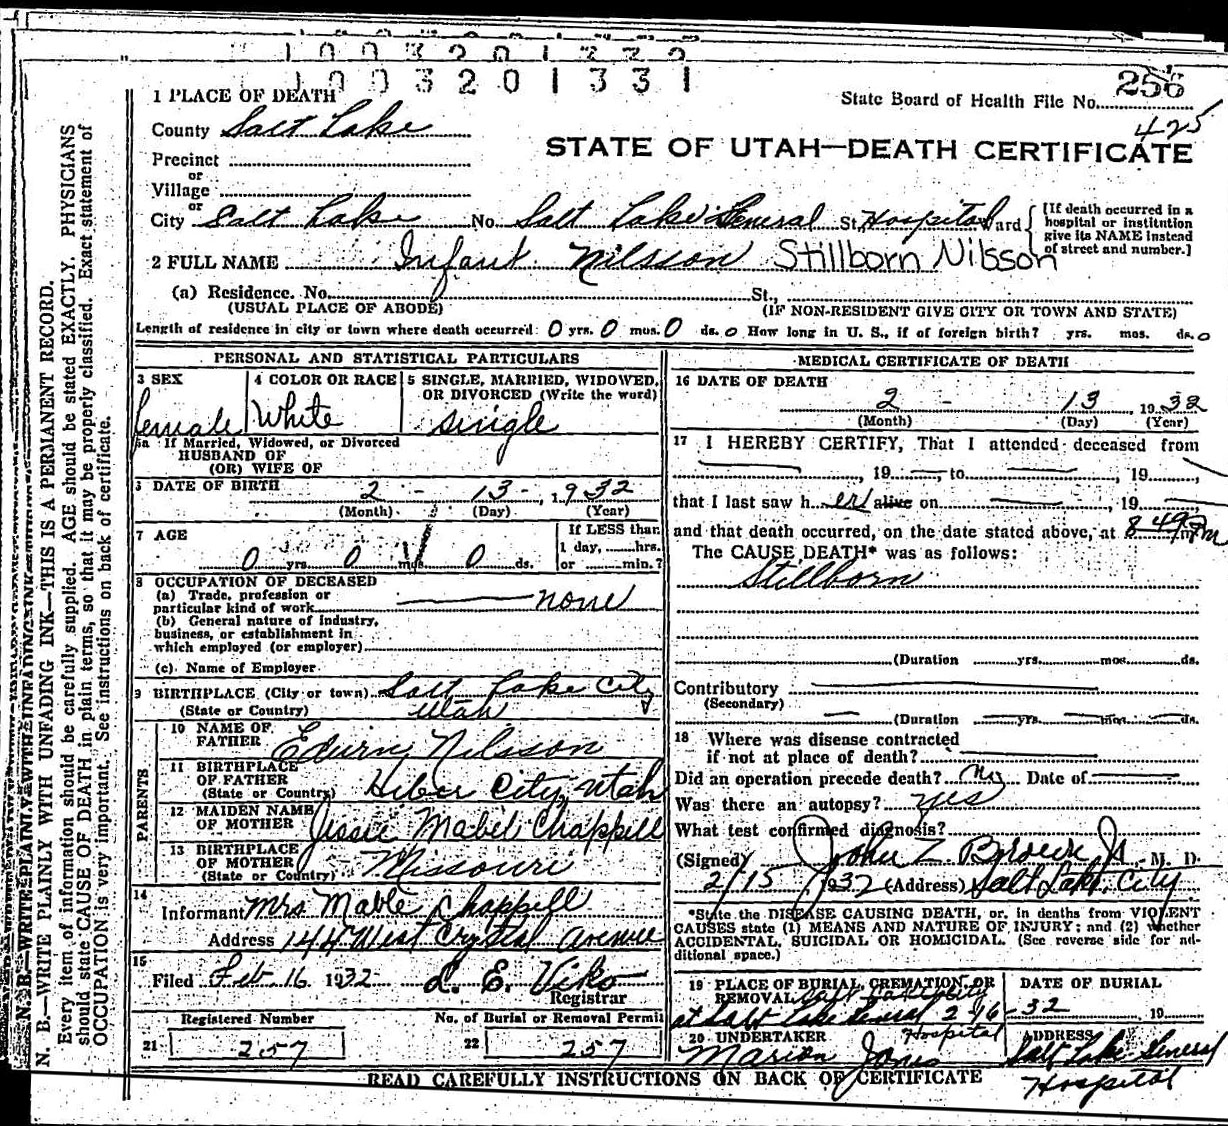 1003201331
256
1 PLACE OF DEATH
State Board of Health File No.
425
County Salt Lake
STATE OF UTAH—DEATH CERTIFICATE
Precinct
or
Village
or
City Salt Lake No. Salt Lake General St. Hospital Ward
[If death occurred in a hospital or institution give its NAME instead of street and number.]
2 FULL NAME Infant Nilsson Stillborn Nilsson
(a) Residence. No. St.,
(USUAL PLACE OF ABODE) (IF NON-RESIDENT GIVE CITY OR TOWN AND STATE)
Length of residence in city or town where death occurred: 0 yrs. 0 mos. 0 ds. 0 How long in U. S., if of foreign birth? yrs. mos. ds. 0
PERSONAL AND STATISTICAL PARTICULARS
3 SEX 4 COLOR OR RACE 5 SINGLE, MARRIED, WIDOWED, OR DIVORCED (Write the word)
female White single
5a If Married, Widowed, or Divorced
HUSBAND OF
(OR) WIFE OF
6 DATE OF BIRTH 2 - 13 - 1932
(Month) (Day) (Year)
7 AGE
If LESS than
1 day, hrs.
0 yrs. 0 mos. 0 ds. or min.?
8 OCCUPATION OF DECEASED
(a) Trade, profession or
particular kind of work none
(b) General nature of industry,
business, or establishment in
which employed (or employer)
(c) Name of Employer
9 BIRTHPLACE (City or town) Salt Lake City
(State or Country) Utah
PARENTS
10 NAME OF
FATHER Edwin Nilsson
11 BIRTHPLACE
OF FATHER
(State or Country) Heber City, Utah
12 MAIDEN NAME
OF MOTHER Jessie Mabel Chappell
13 BIRTHPLACE
OF MOTHER
(State or Country) Missouri
14
Informant Mrs Mable Chappell
Address 144 West Crystal Avenue
15
Filed Feb. 16 1932 L. E. Viko
Registrar
Registered Number No. of Burial or Removal Permit
21 257 22 257
MEDICAL CERTIFICATE OF DEATH
16 DATE OF DEATH
2 13 1932
(Month) (Day) (Year)
17 I HEREBY CERTIFY, That I attended deceased from
, 19 to , 19
that I last saw her alive on , 19
and that death occurred, on the date stated above, at 8 49 Pm
The CAUSE DEATH* was as follows:
Stillborn
(Duration yrs. mos. ds.
Contributory
(Secondary)
(Duration yrs. mos. ds.
18 Where was disease contracted
if not at place of death?
Did an operation precede death? no Date of
Was there an autopsy? yes
What test confirmed diagnosis?
(Signed) John Z. Brown Jr. M. D.
2/15 1932 (Address) Salt Lake City
*State the DISEASE CAUSING DEATH, or, in deaths from VIOLENT
CAUSES state (1) MEANS AND NATURE OF INJURY; and (2) whether
ACCIDENTAL, SUICIDAL OR HOMICIDAL. (See reverse side for additional space.)
19 PLACE OF BURIAL, CREMATION, OR REMOVAL Salt Lake City DATE OF BURIAL
at Salt Lake General Hospital 2-16-32, 19
20 UNDERTAKER ADDRESS
Marion Jones Salt Lake General Hospital
READ CAREFULLY INSTRUCTIONS ON BACK OF CERTIFICATE
N. B.—WRITE PLAINLY WITH UNFADING INK—THIS IS A PERMANENT RECORD.
Every item of information should be carefully supplied. AGE should be stated EXACTLY. PHYSICIANS
should state CAUSE OF DEATH in plain terms, so that it may be properly classified. Exact statement of
OCCUPATION is very important. See instructions on back of certificate.